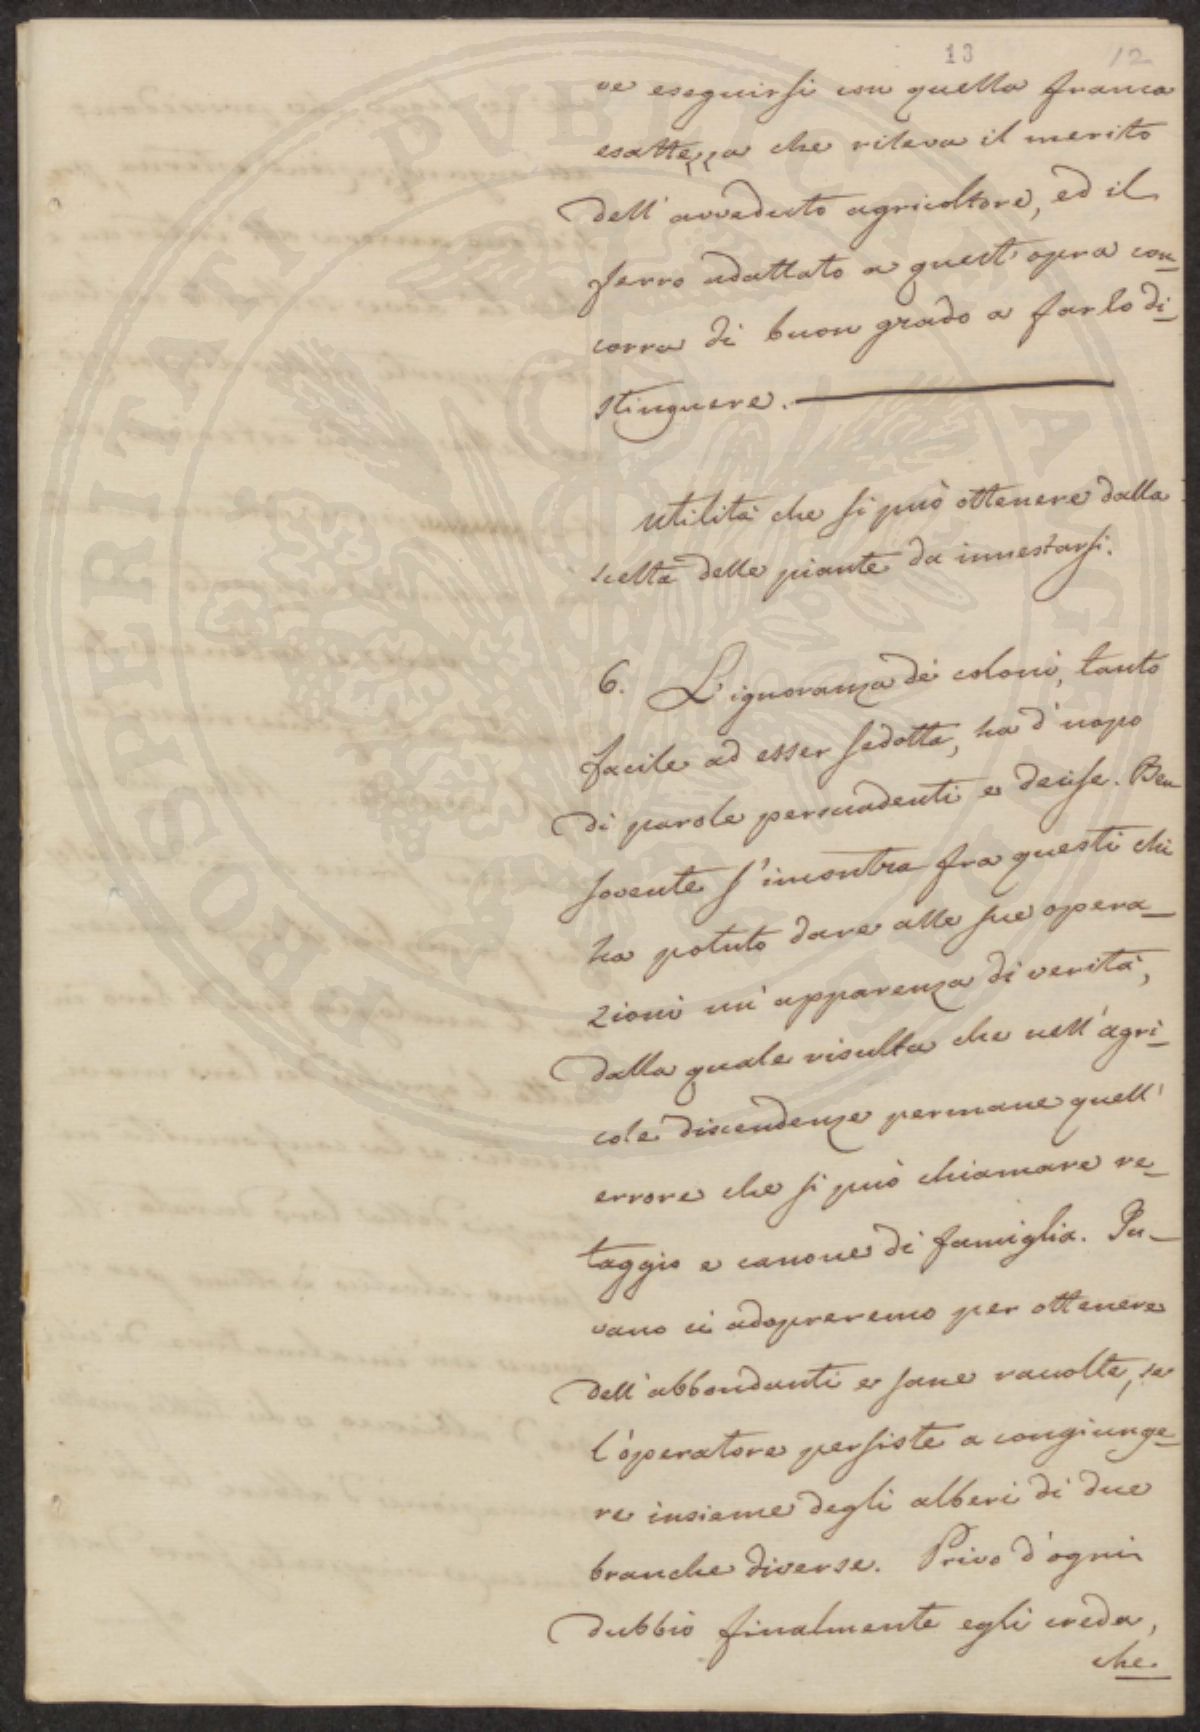 13 12
ve eseguirsi con quella franca
esattezza che rileva il merito
dell' avveduto agricoltore, ed il
ferro adattato a quest' opera con-
corra di buon grado a farlo di-
stinguere.
Utilità che si può ottenere dalla
scelta delle piante da innestarsi.
6. L'ignoranza dei coloni, tanto
facile ad esser sedotta, ha d'uopo
di parole persuadenti e decise. Ben
sovente s'incontra fra questi chi
ha potuto dare alle sue opera-
zioni un' apparenza di verità,
dalla quale risulta che nell' agri-
cole discendenze permane quell'
errore che si può chiamare re-
taggio e canone di famiglia. In-
vano ci adopreremo per ottenere
dell' abbondanti e sane raccolte, se
l'operatore persiste a congiunge-
re insieme degli alberi di due
branche diverse. Privo d'ogni
dubbio finalmente egli creda,
che
PROSPERITATI PVBLICAE AVGENDAE